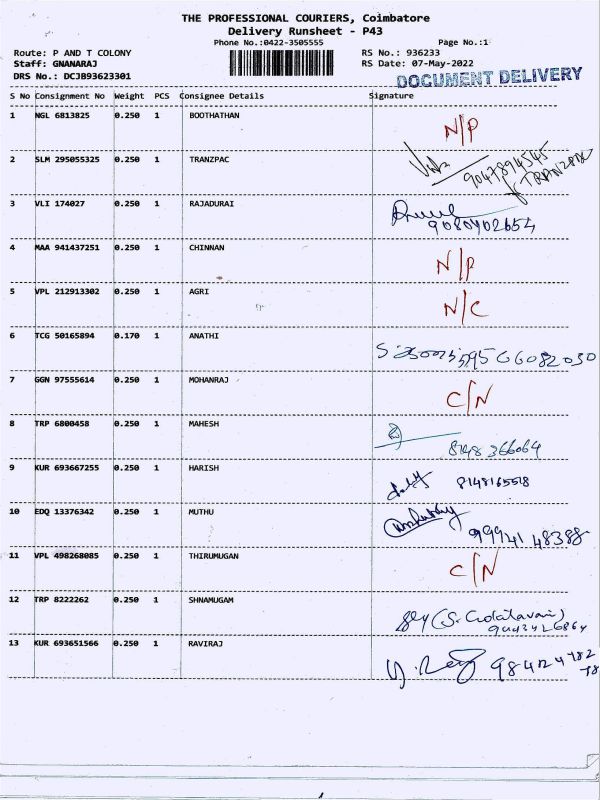 THE PROFESSIONAL COURIERS, Coimbatore
Delivery Runsheet - P43
Phone No.:0422-3505555
Page No.:1
Route: P AND T COLONY
RS No.: 936233
Staff: GNANARAJ
RS Date: 07-May-2022
DRS No.: DCJB93623301
DOCUMENT DELIVERY
S No Consignment No Weight PCS Consignee Details Signature
1 NGL 6813825 0.250 1 BOOTHATHAN N/P
2 SLM 295055325 0.250 1 TRANZPAC 9047894545
TRANZPAC
3 VLI 174027 0.250 1 RAJADURAI
9080402654
4 MAA 941437251 0.250 1 CHINNAN N/P
5 VPL 212913302 0.250 1 AGRI N/C
6 TCG 50165894 0.170 1 ANATHI
7 GGN 97555614 0.250 1 MOHANRAJ C/N
8 TRP 6800458 0.250 1 MAHESH
8148366064
9 KUR 693667255 0.250 1 HARISH 8148165518
10 EDQ 13376342 0.250 1 MUTHU
9994148388
11 VPL 498268085 0.250 1 THIRUMUGAN C/N
12 TRP 8222262 0.250 1 SHNAMUGAM
13 KUR 693651566 0.250 1 RAVIRAJ